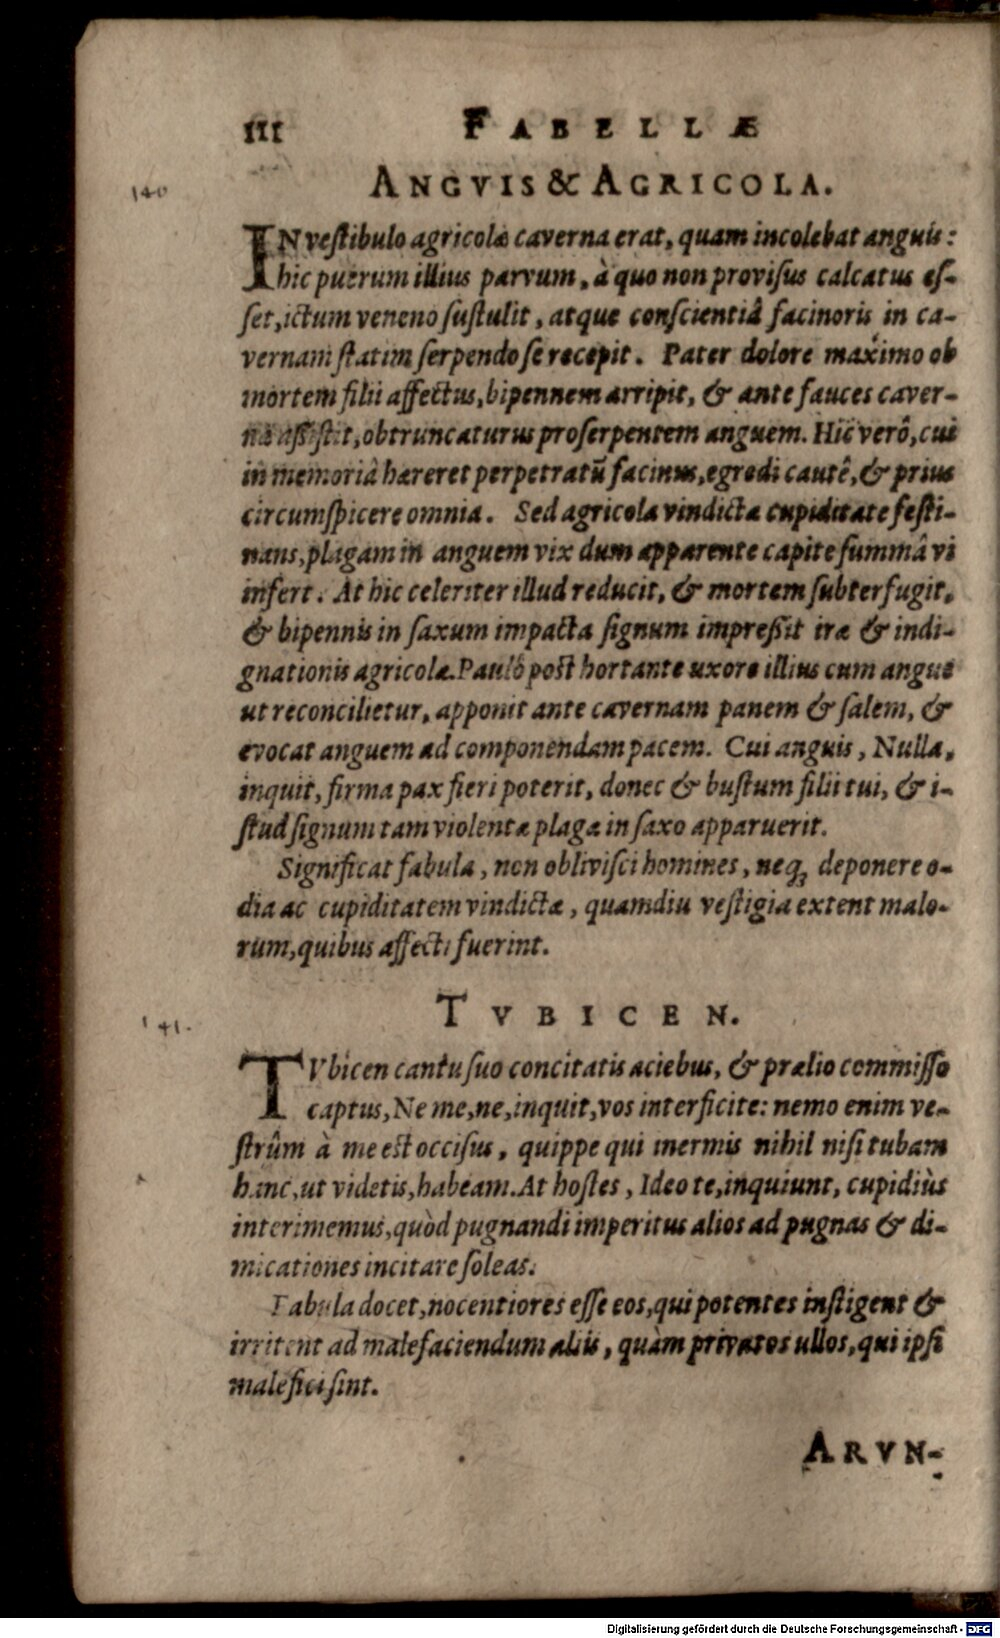 III FABELLÆ
140 ANGVIS & AGRICOLA.
IN veſtibulo agricolæ caverna erat, quam incolebat anguis:
hic puerum illius parvum, à quo non proviſus calcatus eſ-
ſet, ictum veneno ſuſtulit, atque conſcientiâ facinoris in ca-
vernam ſtatim ſerpendo ſe recepit. Pater dolore maximo ob
mortem filii affectus, bipennem arripit, & ante fauces caver-
næ aſſiſtit, obtruncaturus proſerpentem anguem. Hic verô, cui
in memoriâ hæreret perpetratũ facinus, egredi cautê, & prius
circumſpicere omnia. Sed agricola vindictæ cupiditate feſti-
nans, plagam in anguem vix dum apparente capite ſummâ vi
infert. At hic celeriter illud reducit, & mortem ſubterfugit,
& bipennis in ſaxum impacta ſignum impreßit iræ & indi-
gnationis agricolæ. Paulò poſt hortante uxore illius cum angue
ut reconcilietur, apponit ante cavernam panem & ſalem, &
evocat anguem ad componendam pacem. Cui anguis, Nulla,
inquit, firma pax fieri poterit, donec & buſtum filii tui, & i-
ſtud ſignum tam violentæ plagæ in ſaxo apparuerit.
Significat fabula, non obliviſci homines, neqꝫ deponere o-
dia ac cupiditatem vindictæ, quamdiu veſtigia extent malo-
rum, quibus affecti fuerint.
141. TVBICEN.
TVbicen cantu ſuo concitatis aciebus, & prælio commiſſo
captus, Ne me, ne, inquit, vos interficite: nemo enim ve-
ſtrûm à me eſt occiſus, quippe qui inermis nihil niſi tubam
hanc, ut videtis, habeam. At hoſtes, Ideo te, inquiunt, cupidiùs
interimemus, quòd pugnandi imperitus alios ad pugnas & di-
micationes incitare ſoleas.
Fabula docet, nocentiores eſſe eos, qui potentes inſtigent &
irritent ad malefaciendum aliis, quàm privatos ullos, qui ipſi
malefici ſint.
ARVN-
Digitalisierung gefördert durch die Deutsche Forschungsgemeinschaft - DFG